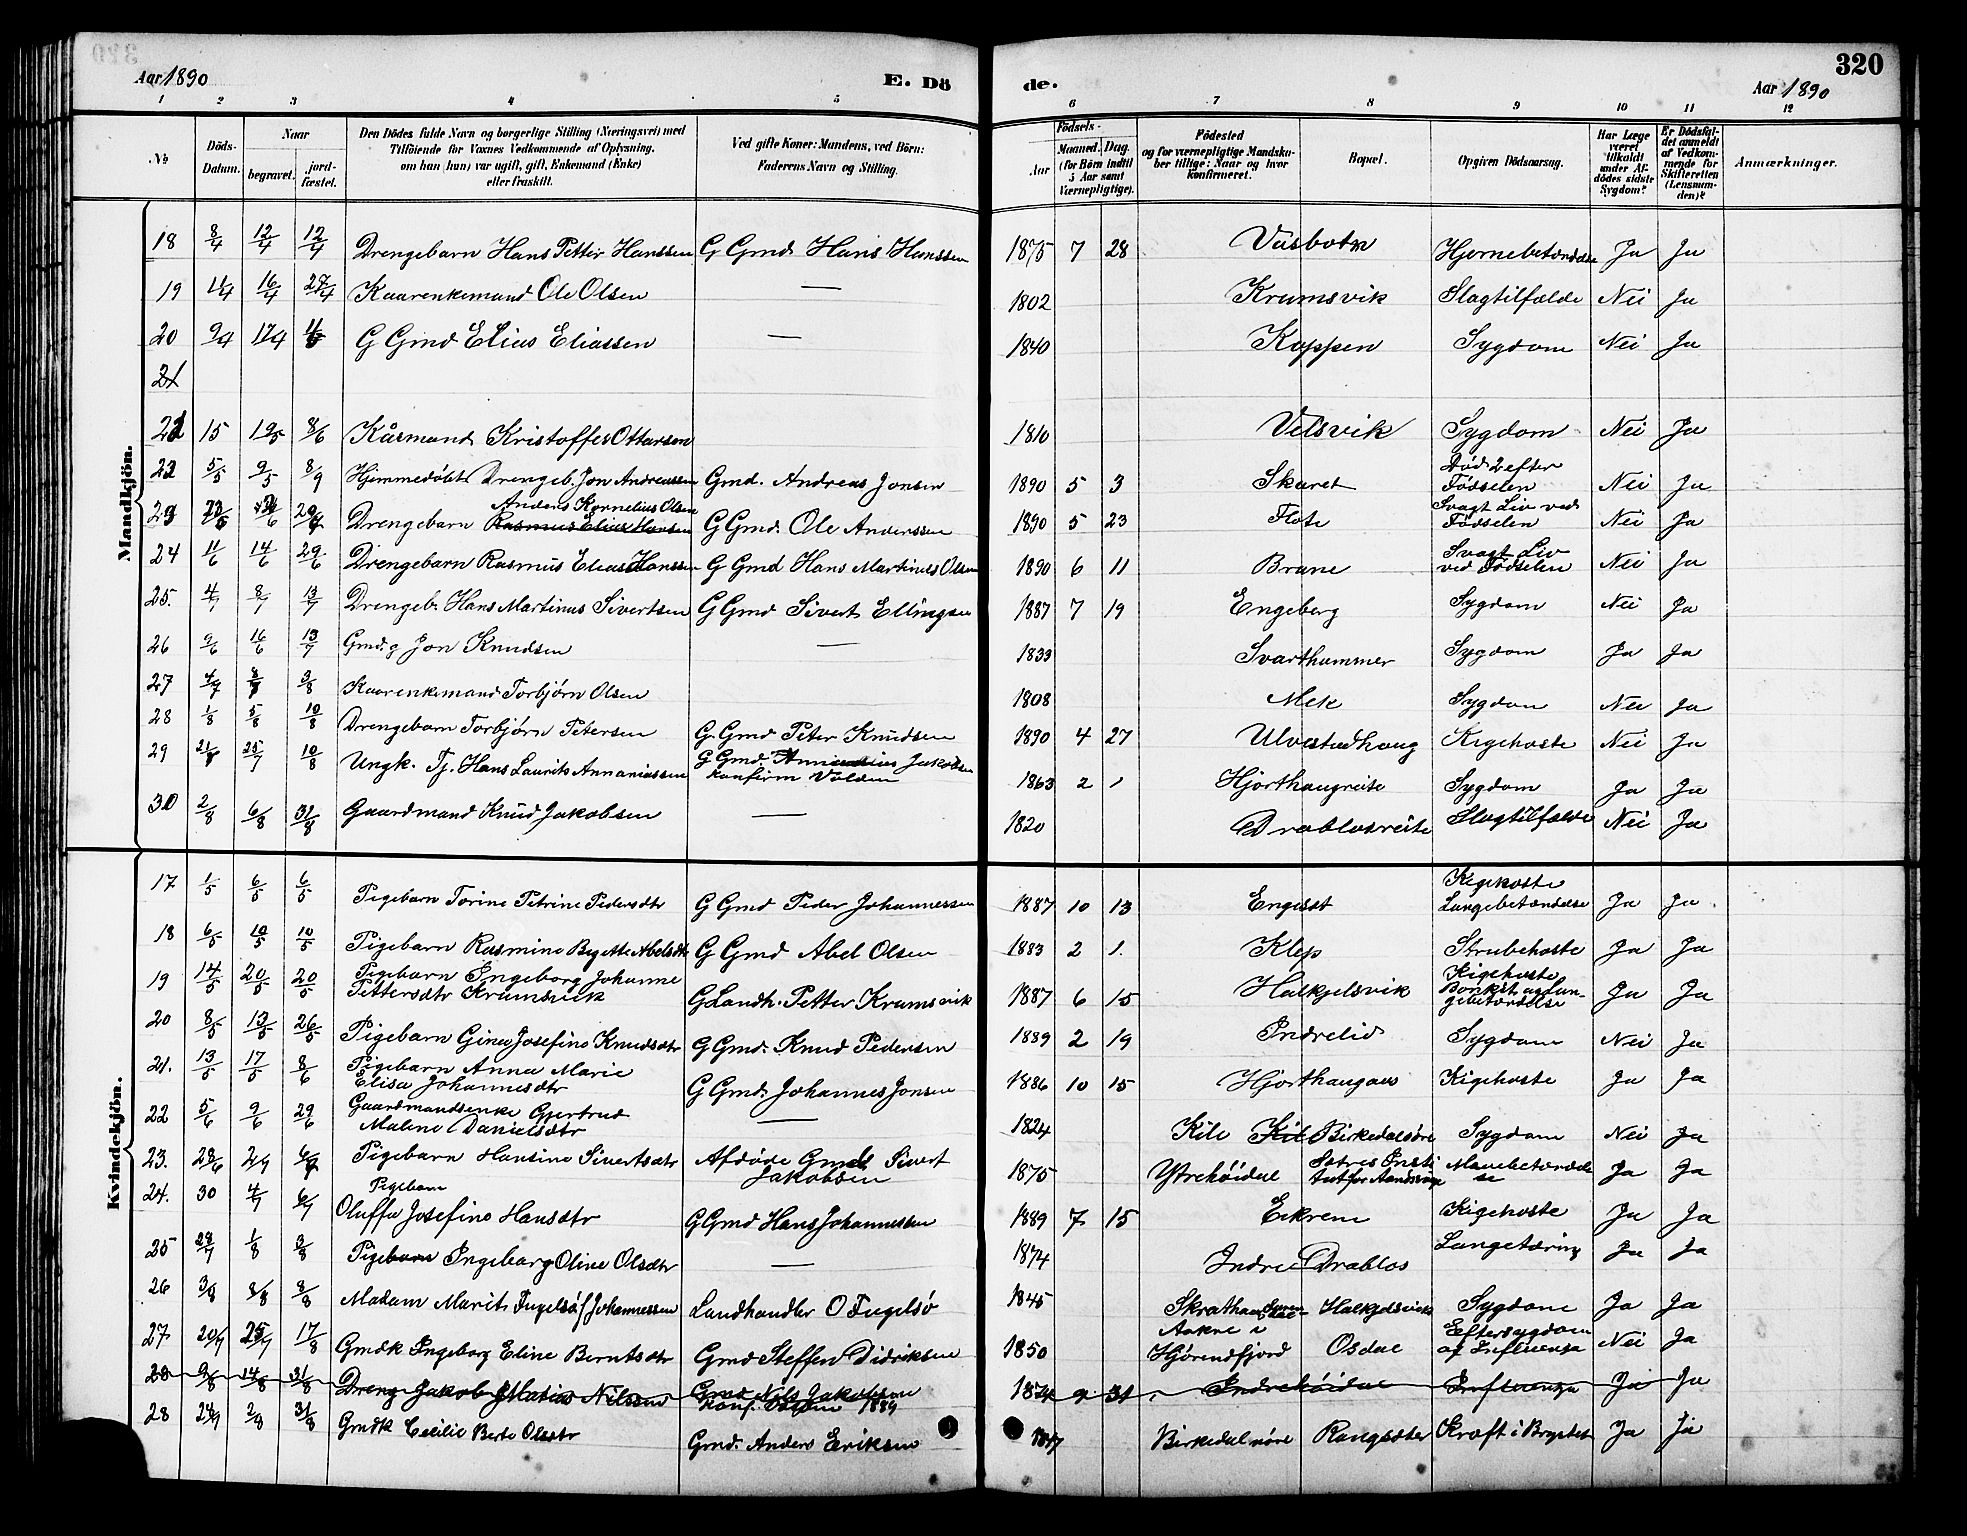 320
Aar 1890 E. Dö de. Aar 1890
1 2 3 4 5 6 7 8 9 10 11 12
№ Döds-Datum. Naar begravet. jordfæstet. Den Dödes fulde Navn og borgerlige Stilling (Næringsvei) med Tilföiende for Voxnes Vedkommende af Oplysning, om han (hun) var ugift, gift, Enkemand (Enke) eller fraskilt. Ved gifte Koner: Mandens, ved Börn: Faderens Navn og Stilling. Födsels- Aar Maaned. Dag. (for Börn indtil 5 Aar samt Værnepligtige). Födested og for værnepligtige Mandskaber tillige: Naar og hvor konfirmeret. Bopæl. Opgiven Dödsaarsag. Har Læge været tilkaldt under Afdödes sidste Sygdom? Er Dödsfaldet anmeldt af Vedkommende for Skifteretten (Lensmanden)? Anmærkninger.
Mandkjön.
18 8/4 12/4 12/4 Drengebarn Hans Petter Hanssen G Gmd. Hans Hanssen 1875 7 28 Vasbotn Hjernebetændelse Ja Ja
19 11/4 16/4 27/4 Kaarenkemand Ole Olsen — 1802 Krumsvik Slagtilfælde Nei Ja
20 9/4 17/4 G Gmd Elias Eliassen — 1840 Koppen Sygdom Nei Ja
21
15 19/5 8/6 Kårmand Kristoffer Ottarsen 1810 Velsvik Sygdom Nei Ja
5/5 9/5 8/9 Hjemmedöbt Drengeb. Jon Andreassen Gmd. Andreas Jonsen 1890 5 3 Skaret Död 2 efter Födselen Nei Ja
Drengebarn Anders Kornelius Olsen Rasmus Elias Hansen G Gmd. Ole Anderssen 1890 5 23 Flote Svagt Liv ved Födselen Nei Ja
24 11/6 14/6 29/6 Drengebarn Rasmus Elias Hanssen G Gmd Hans Martinus Olsen 1890 6 11 Brune Svagt Liv ved Födselen Nei Ja
25. 4/7 8/7 13/7 Drengeb. Hans Martinus Sivertsen G Gmd Sivert Ellingsen 1887 7 19 Engeberg Sygdom Nei Ja
26 9/6 16/6 13/7 Gmd. g Jon Knudsen — 1833 Svarthammer Sygdom Ja Ja
27 4/7 8/7 3/8 Kaarenkemand Torbjørn Olsen 1808 Mek Sygdom Nei Ja
28 1/8 5/8 10/8 Drengebarn Torbjørn Petersen G Gmd Peter Knudsen 1890 4 27 Ulvestadhaug Kigehoste Nei Ja
29 25/7 10/8 Ungk. Tj. Hans Laurits Annaniassen G Gmd. Annanias Jakobsen konfirm Volden 1863 2 1 Hjorthaugreite Sygdom Ja Ja
30 2/8 6/8 31/8 Gaardmand Knud Jakobsen — 1820 Drablosreite Slagtilfælde Nei Ja
Kvindekjön.
17 1/5 6/5 6/5 Pigebarn Torine Petrine Pedersdtr G Gmd Peder Johannessen 1887 10 13 Engeset Kigehoste Lungebetændelse Ja Ja
18 6/5 10/5 10/5 Pigebarn Rasmine Bergitte Abelsdtr G Gmd Abel Olsen 1883 2 1. Klep Strubehoste Ja Ja
19 14/5 20/5 20/5 Pigebarn Ingeborg Johanne Pettersdtr Krumsvik G Landh. Petter Krumsvik 1887 6 15 Halkjelsvik Kigehoste Bonkit og Lungebetændelse Ja Ja
20 8/5 13/5 26/5 Pigebarn Gina Josefine Knudsdtr G Gmd. Knud Pedersen 1889 2 19 Indrelid Sygdom Nei Ja
21. 13/5 17/5 8/6 Pigebarn Anna Marie Elisa Johannesdtr G Gmd. Johannes Jonsen 1886 10 15 Hjorthaugaas Kigehoste Ja Ja
22 5/6 9/6 29/6 Gaardmandsenke Gjertrud Malene Danielsdtr — 1824 Kile Kil Birkedalsøre Sygdom Nei Ja
23. 23/6 2/7 6/7 Pigebarn Hansine Sivertsdtr Afdøde Gmd. Sivert Jakobsen 1875 Ytrehöidal Mavebetændelse Ja Ja
24. 30 4/7 6/7 Pigebarn Oluffa Josefine Hansdtr G Gmd Hans Johannessen 1889 7 15 Eikrem Kigehoste Ja Ja
25 29/7 1/8 3/8 Pigebarn Ingeborg Oline Olsdtr — 1874 Indre Drablos Lungetæring Ja Ja
26 3/8 8/8 8/8 Madam Marit Fugelsø f Johannessen Landhandler O Fugelsø 1845 Halkjelsvik Sygdom Ja Ja
27 20/7 25/7 17/8 Gmdk Ingeborg Eline Berntsdtr Gmd Steffen Didriksen 1850 Aakne i Hjørendfjord Osdal Eftersygdom af Influensa Nei Ja
28 9/8 14/8 31/8 Dreng Jakob Matias Nilssen Gmd Nils Jakobsen konf. 1889 1874 9 31 Indrehöidal Influensa Ja Ja
28 2/8 31/8 Gmdk Cecilie Berte Olsdtr Gmd. Anders Eriksen Birkedalsøre Rangsæter Kræft i Brystet Ja Ja